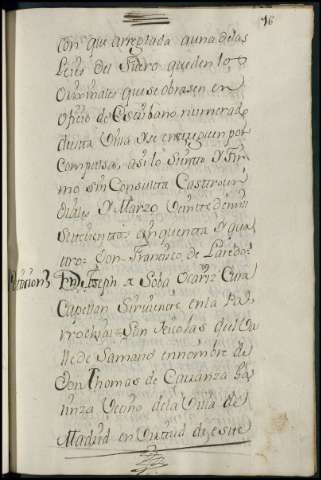 16
con que arreglada a una de las
Leies del fuero queden los
originales que se obrasen en
oficio de Escribano numerado
de esta Villa y se entreguen por
compulsa, asi lo siento y fir
mo sin consulta Castrour
diales y Marzo veinte de mil
setecientos cinquenta y qua
tro: Don Francisco de Laredo:
Dn Joseph a Soba Ocariz Cura
Capellan sirviente en la Pa
rrochial San Nicolas del Va
lle de Samano en nombre de
Don Thomas de Carranza ba
unza vecino de la Villa de
Madrid en virtud de este